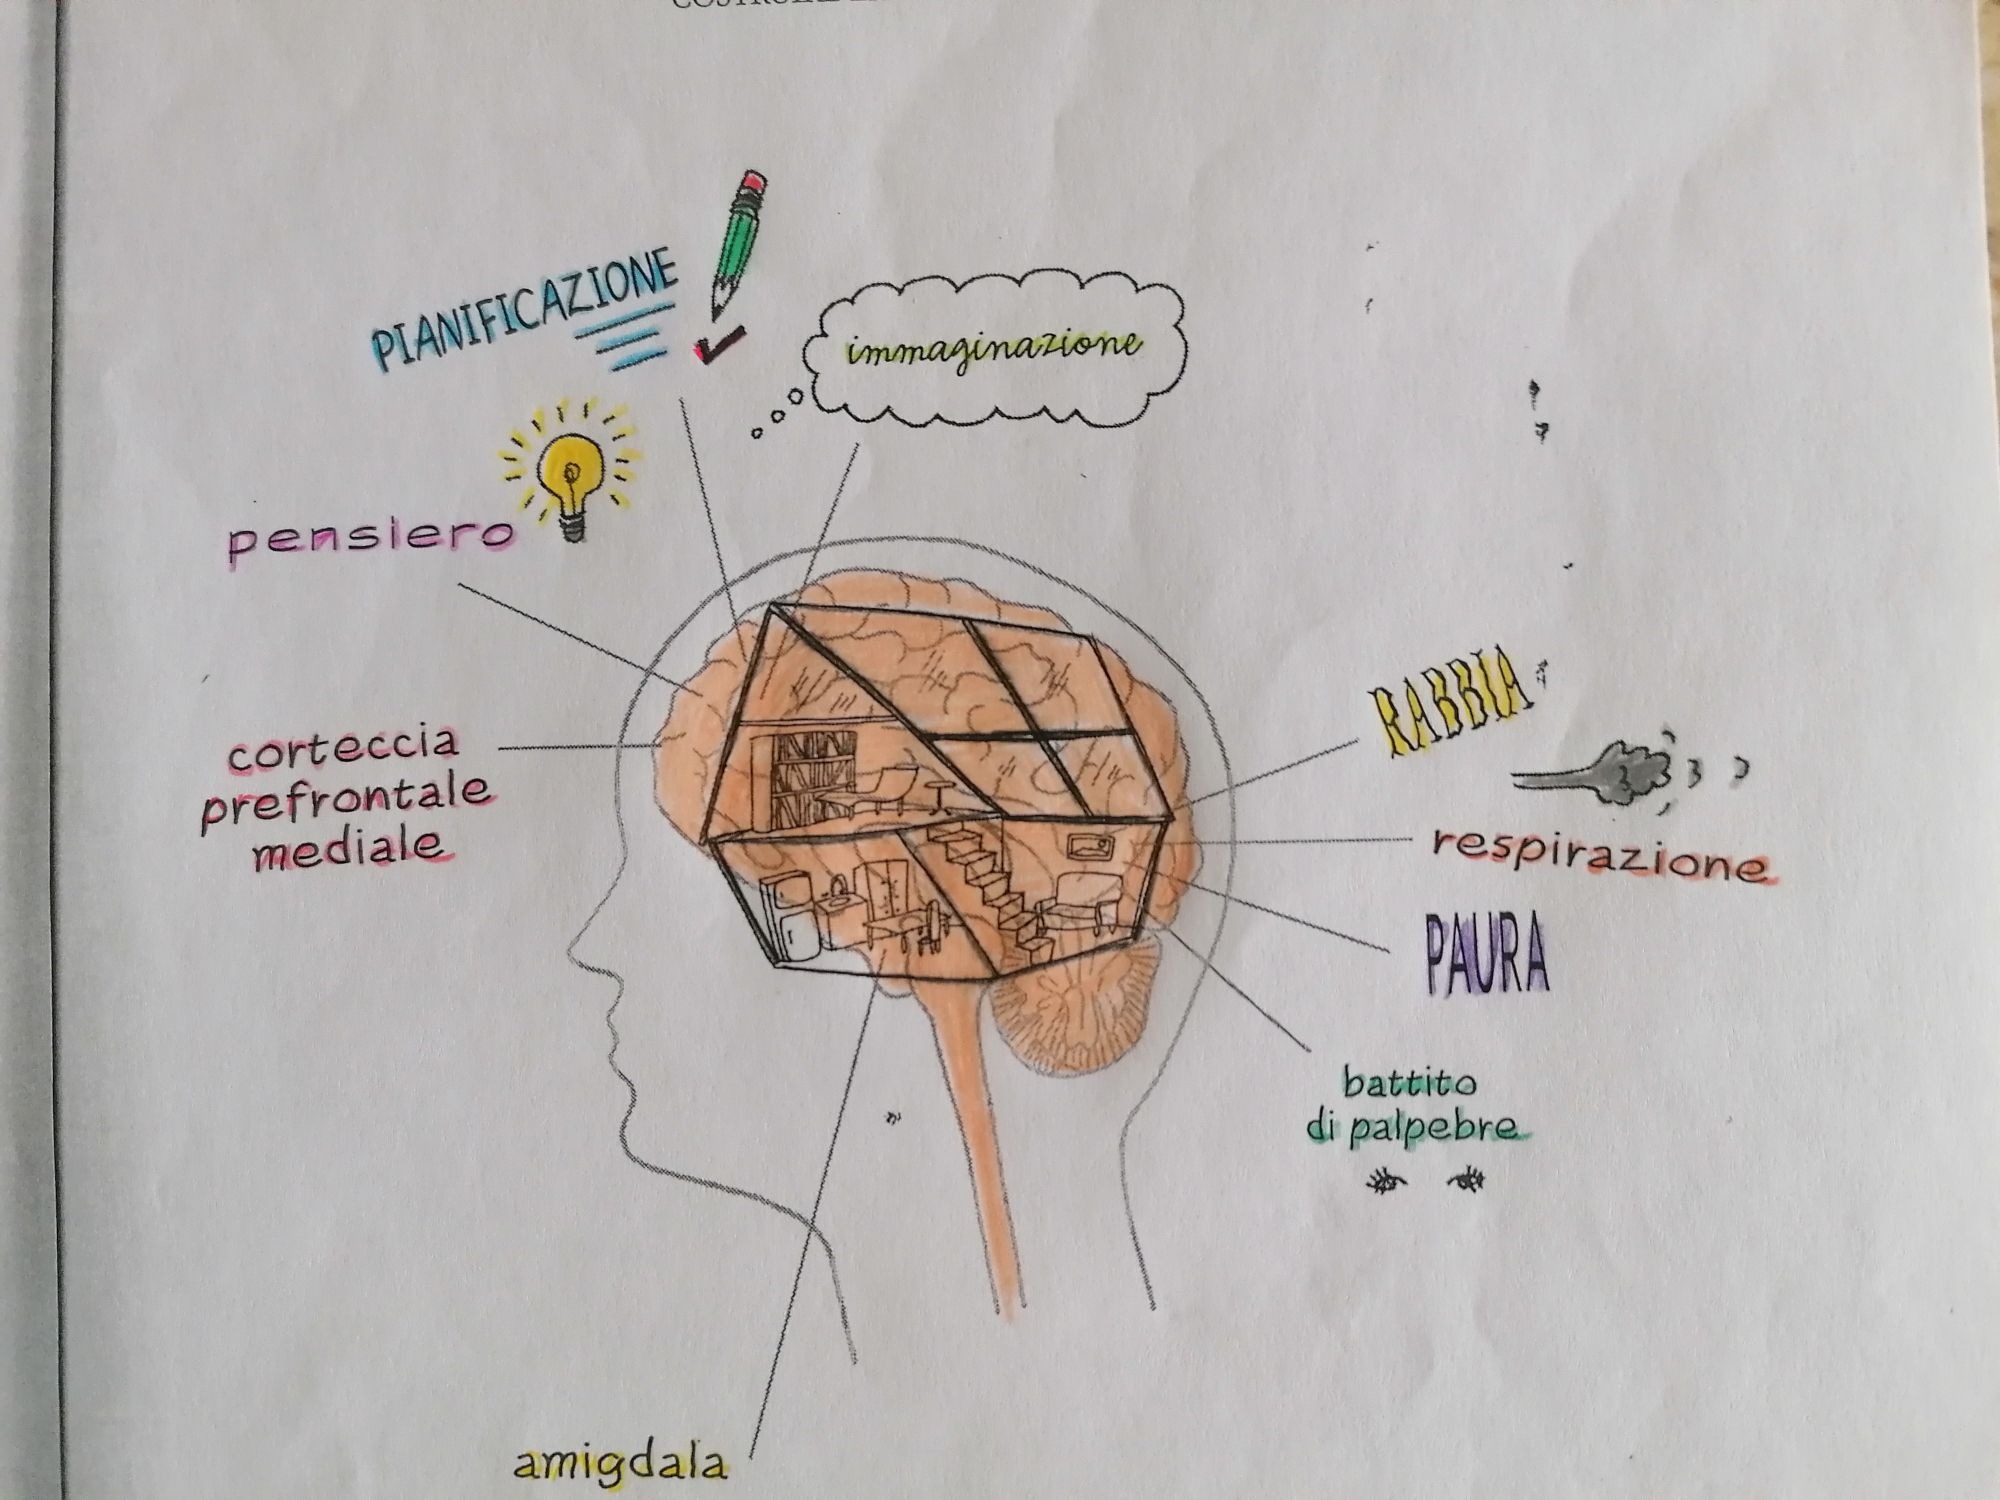 PIANIFICAZIONE
immaginazione
pensiero
corteccia
prefrontale
mediale
RABBIA
respirazione
PAURA
battito
di palpebre
amigdala